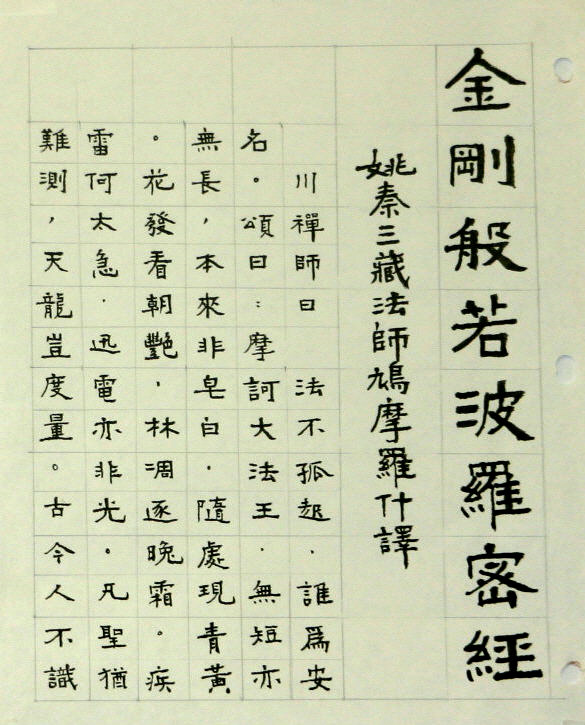 金剛般若波羅密經
姚秦三藏法師鳩摩羅什譯
川禪師曰 法不孤起．誰爲安
名。頌曰：摩訶大法王．無短亦
無長，本來非皂白．隨處現青黃
。花發看朝艷，林凋逐晚霜。疾
雷何太急．迅電亦非光。凡聖猶
難測，天龍豈度量。古今人不識